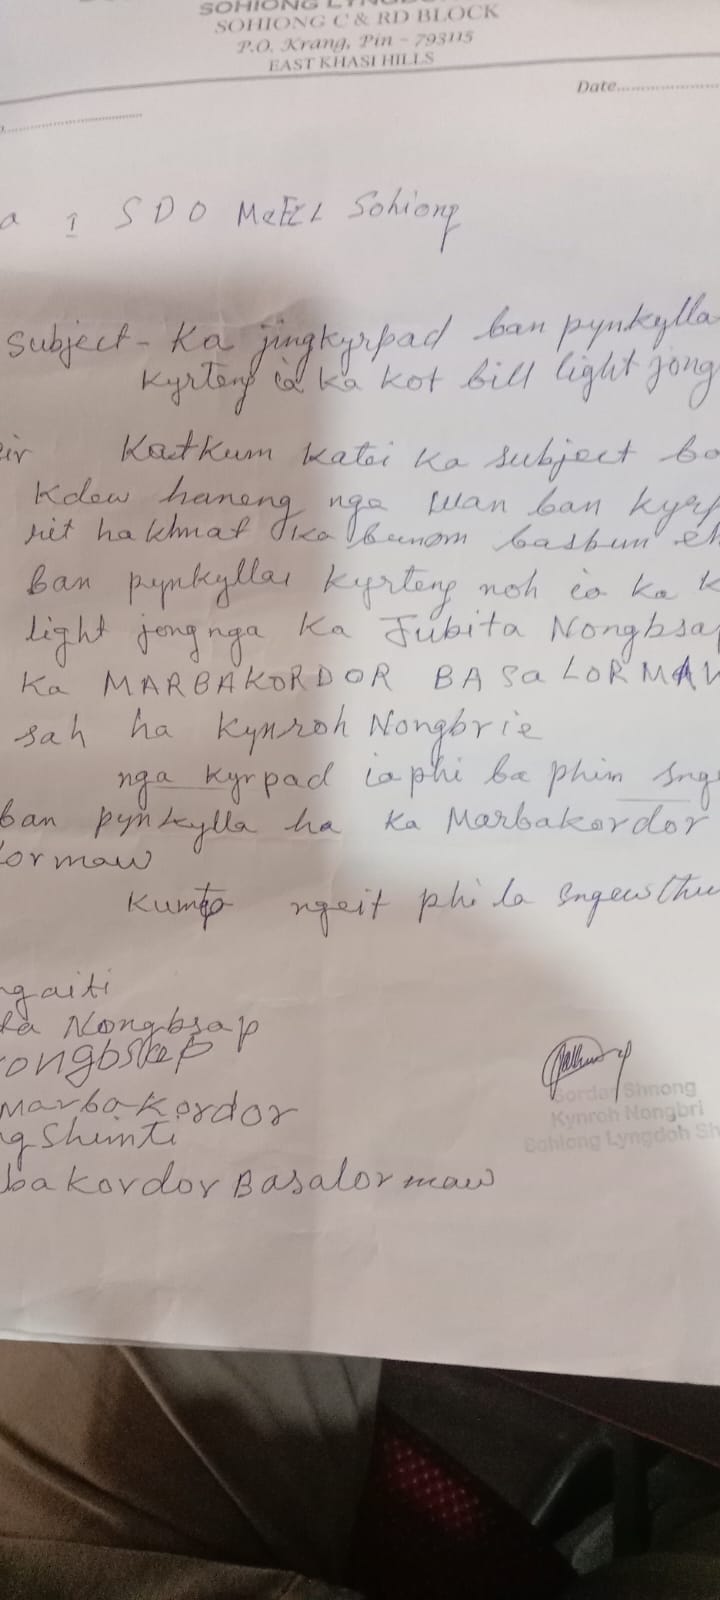 SOHIONG
SOHIONG C & RD BLOCK
P.O. Krang, Pin - 793115
EAST KHASI HILLS
Date
a I SDO MeECL Sohiong
Subject - Ka jingkyrpad ban pynkylla
kyrteng ia ka kot bill light jong
Katkum katei ka subject ba
kdew haneng nga wan ban kyrp
rit ha khmat ka bunom basbun eh
ban pynkyllai kyrteng noh ia ka k
light jong nga Ka Jubita Nongbsap
Ka MARBAKORDOR BASALORMAW
sah ha Kynroh Nongbrie
nga kyrpad ia phi ba phim snge
ban pynkylla ha ka Marbakordor
lormaw
Kumto ngeit phi la sngewthu
ngaiti
ta Nongbsap
ongbsap
Marbakordor
g Shimti
bakordor Basalormaw
Sordar Shnong
Kynroh Nongbri
Sohiong Lyngdoh Sh